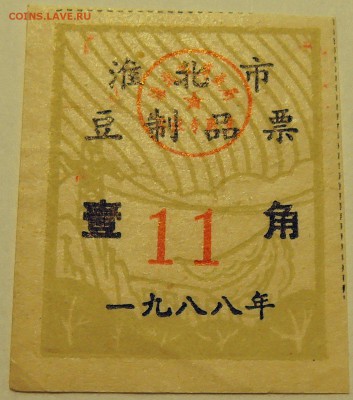 COINS.LAVE.RU
淮北市
豆制品票
壹 11 角
一九八八年